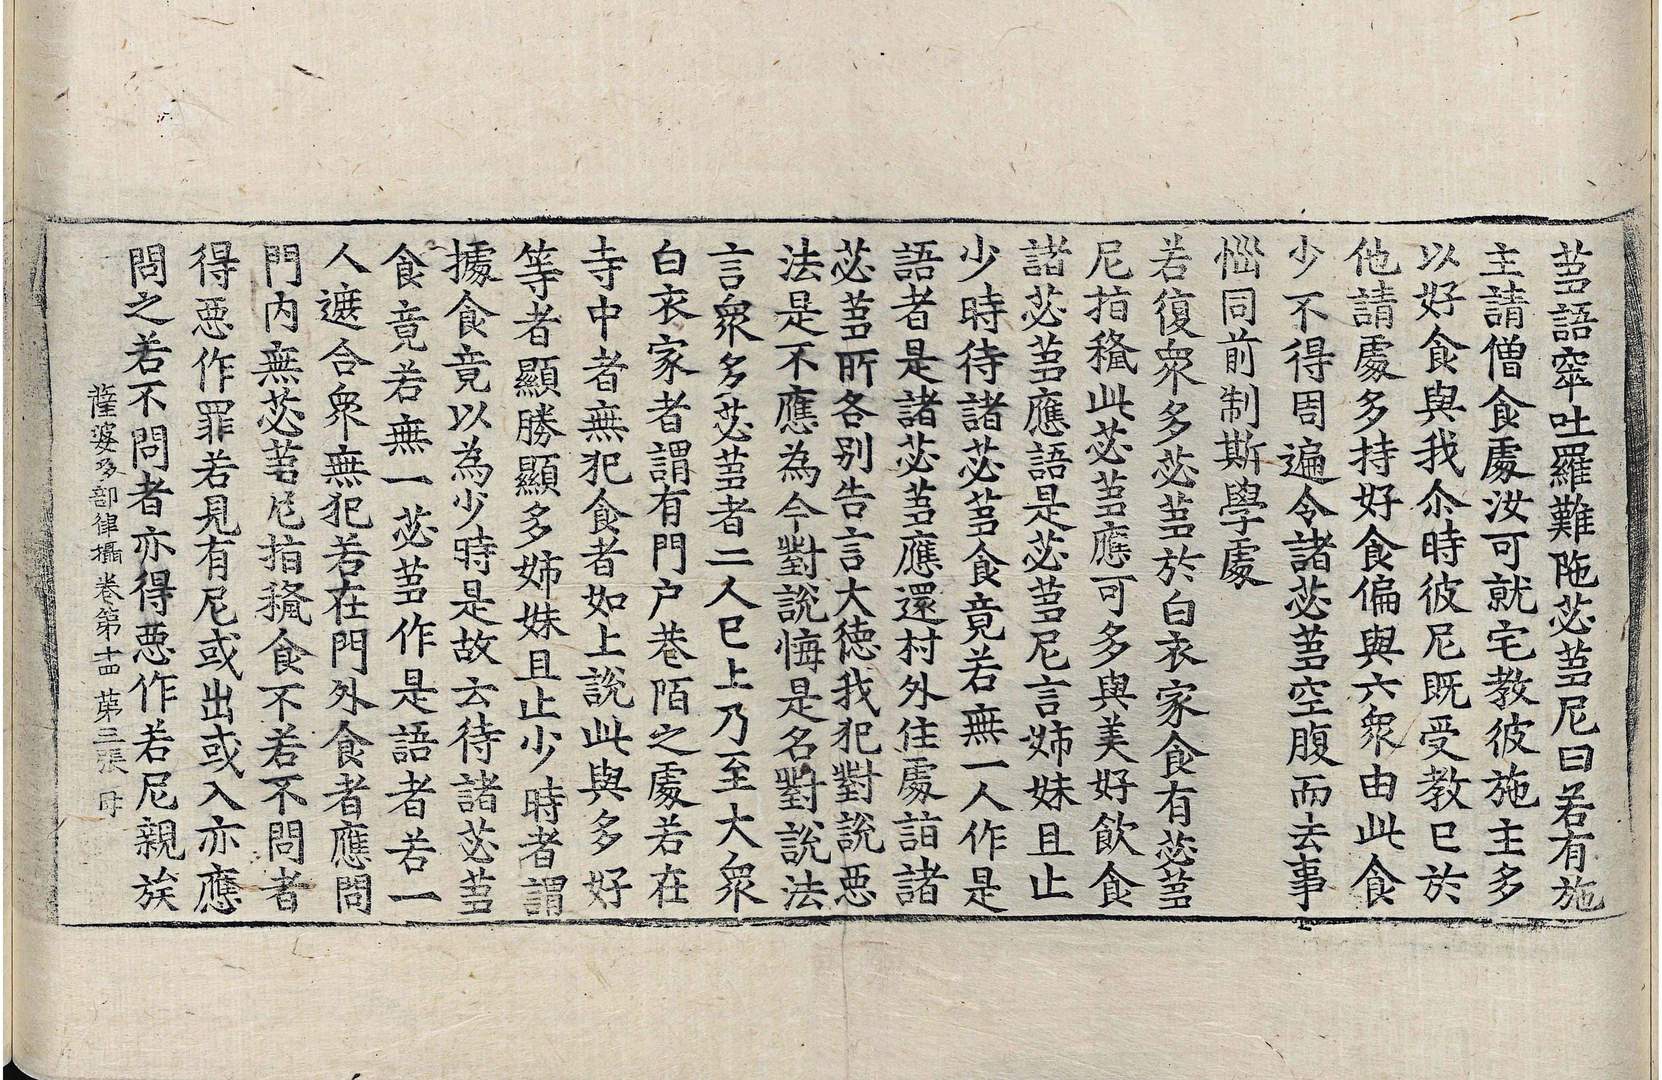 苾語窣吐羅難陁苾芻尼曰若有施
主請僧食處汝可就宅教彼施主多
以好食與我尒時彼尼既受教已於
他請處多持好食偏與六衆由此食
少不得周遍令諸苾芻空腹而去事
惱同前制斯學處
若復衆多苾芻於白衣家食有苾芻
尼指授此苾芻應可多與美好飲食
諸苾芻應語是苾芻尼言姊妹且止
少時待諸苾芻食竟若無一人作是
語者是諸苾芻應還村外住處詣諸
苾芻所各別告言大德我犯對說惡
法是不應為今對說悔是名對說法
言衆多苾芻者二人已上乃至大衆
白衣家者謂有門户巷陌之處若在
寺中者無犯食者如上說此與多好
等者顯勝顯多姊妹且止少時者謂
據食竟以為少時是故云待諸苾芻
食竟若無一苾芻作是語者若一
人遮合衆無犯若在門外食者應問
門內無苾芻尼指授食不若不問者
得惡作罪若見有尼或出或入亦應
問之若不問者亦得惡作若尼親族
薩婆多部律攝卷第十四 第三張 母